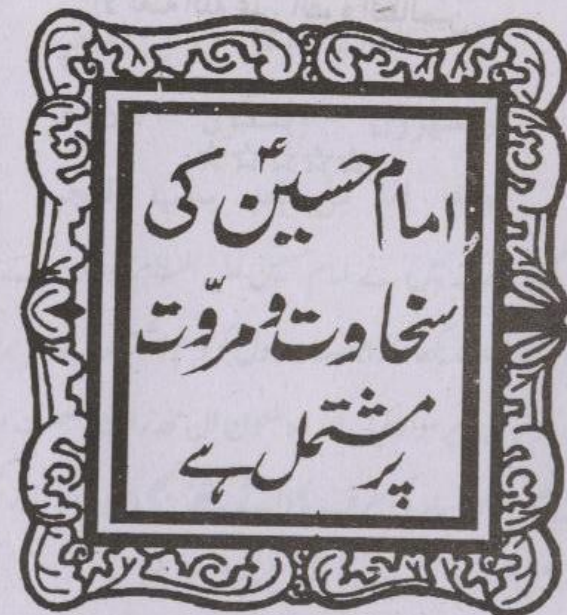 امام حسینؑ کی
سخاوت و مروّت
پر مشتمل ہے